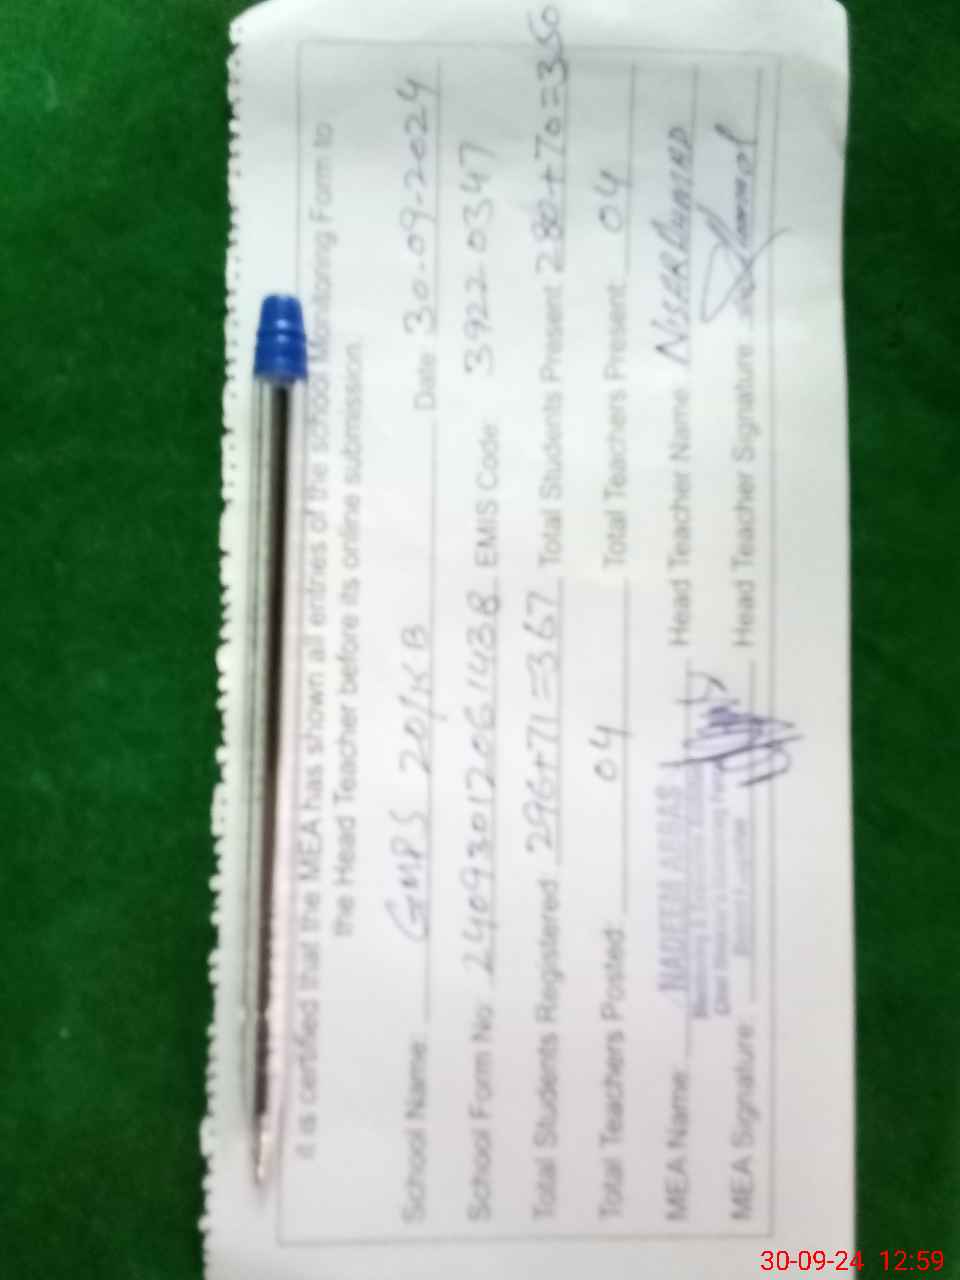 It is certified that the MEA has shown all entries of the school Monitoring Form to
the Head Teacher before its online submission.
School Name: GMPS 20/KB Date: 30-09-2024
School Form No: 24093012061438 EMIS Code: 39220347
Total Students Registered 296+71=367 Total Students Present 280+70=350
Total Teachers Posted: 04 Total Teachers Present: 04
MEA Name: NADEEM ABBAS Head Teacher Name:
MEA Signature: Head Teacher Signature
30-09-24 12:59